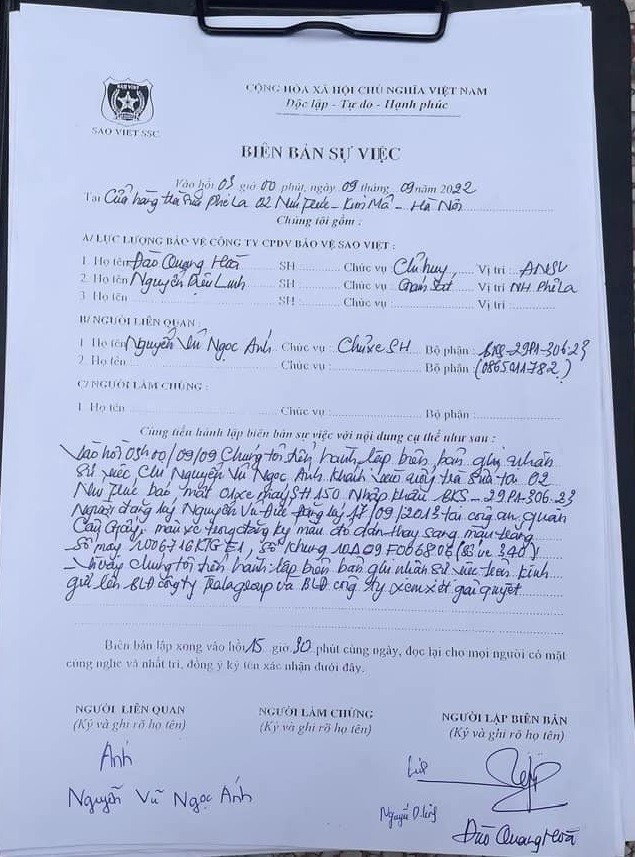 SAO VIỆT
SAO VIỆT SSC
CỘNG HÒA XÃ HỘI CHỦ NGHĨA VIỆT NAM
Độc lập - Tự do - Hạnh phúc
BIÊN BẢN SỰ VIỆC
Vào hồi 03 giờ 00 phút, ngày 09 tháng 09 năm 2022
Tại Cửa hàng trà sữa Phê La 02 Núi Trúc - Kim Mã - Hà Nội
Chúng tôi gồm :
A/ LỰC LƯỢNG BẢO VỆ CÔNG TY CPDV BẢO VỆ SAO VIỆT :
1. Họ tên Đào Quang Hoà SH Chức vụ Chỉ huy Vị trí ANSV
2. Họ tên Nguyễn Diệu Linh SH Chức vụ Giám sát Vị trí NH Phê La
3. Họ tên SH Chức vụ Vị trí
B/ NGƯỜI LIÊN QUAN :
1. Họ tên Nguyễn Vũ Ngọc Anh Chức vụ : Chủ xe SH Bộ phận : BKS - 29P1-306.23
2. Họ tên Chức vụ : Bộ phận : (0865011782)
C/ NGƯỜI LÀM CHỨNG :
1. Họ tên Chức vụ : Bộ phận :
Cùng tiến hành lập biên bản sự việc với nội dung cụ thể như sau :
Vào hồi 03h00/09/09 Chúng tôi tiến hành lập biên bản ghi nhận
sự việc Chị Nguyễn Vũ Ngọc Anh khách vào uống trà sữa tại 02
Núi Trúc báo mất 01 xe máy SH150 Nhập khẩu BKS - 29P1-306.23
Người đăng ký Nguyễn Vũ Đức Đăng ký 17/09/2013 tại công an quận
Cầu Giấy, màu xe trong đăng ký màu đỏ dán thay sang màu trắng
Số máy Số khung (Số vé 340)
Vì vậy chúng tôi tiến hành lập biên bản ghi nhận sự việc trên kính
gửi lên BLĐ công ty group và BLĐ công ty xem xét giải quyết
Biên bản lập xong vào hồi 15 giờ 30 phút cùng ngày, đọc lại cho mọi người có mặt
cùng nghe và nhất trí, đồng ý ký tên xác nhận dưới đây.
NGƯỜI LIÊN QUAN NGƯỜI LÀM CHỨNG NGƯỜI LẬP BIÊN BẢN
(Ký và ghi rõ họ tên) (Ký và ghi rõ họ tên) (Ký và ghi rõ họ tên)
Anh
Nguyễn Vũ Ngọc Anh
Nguyễn D. Linh
Đào Quang Hoà